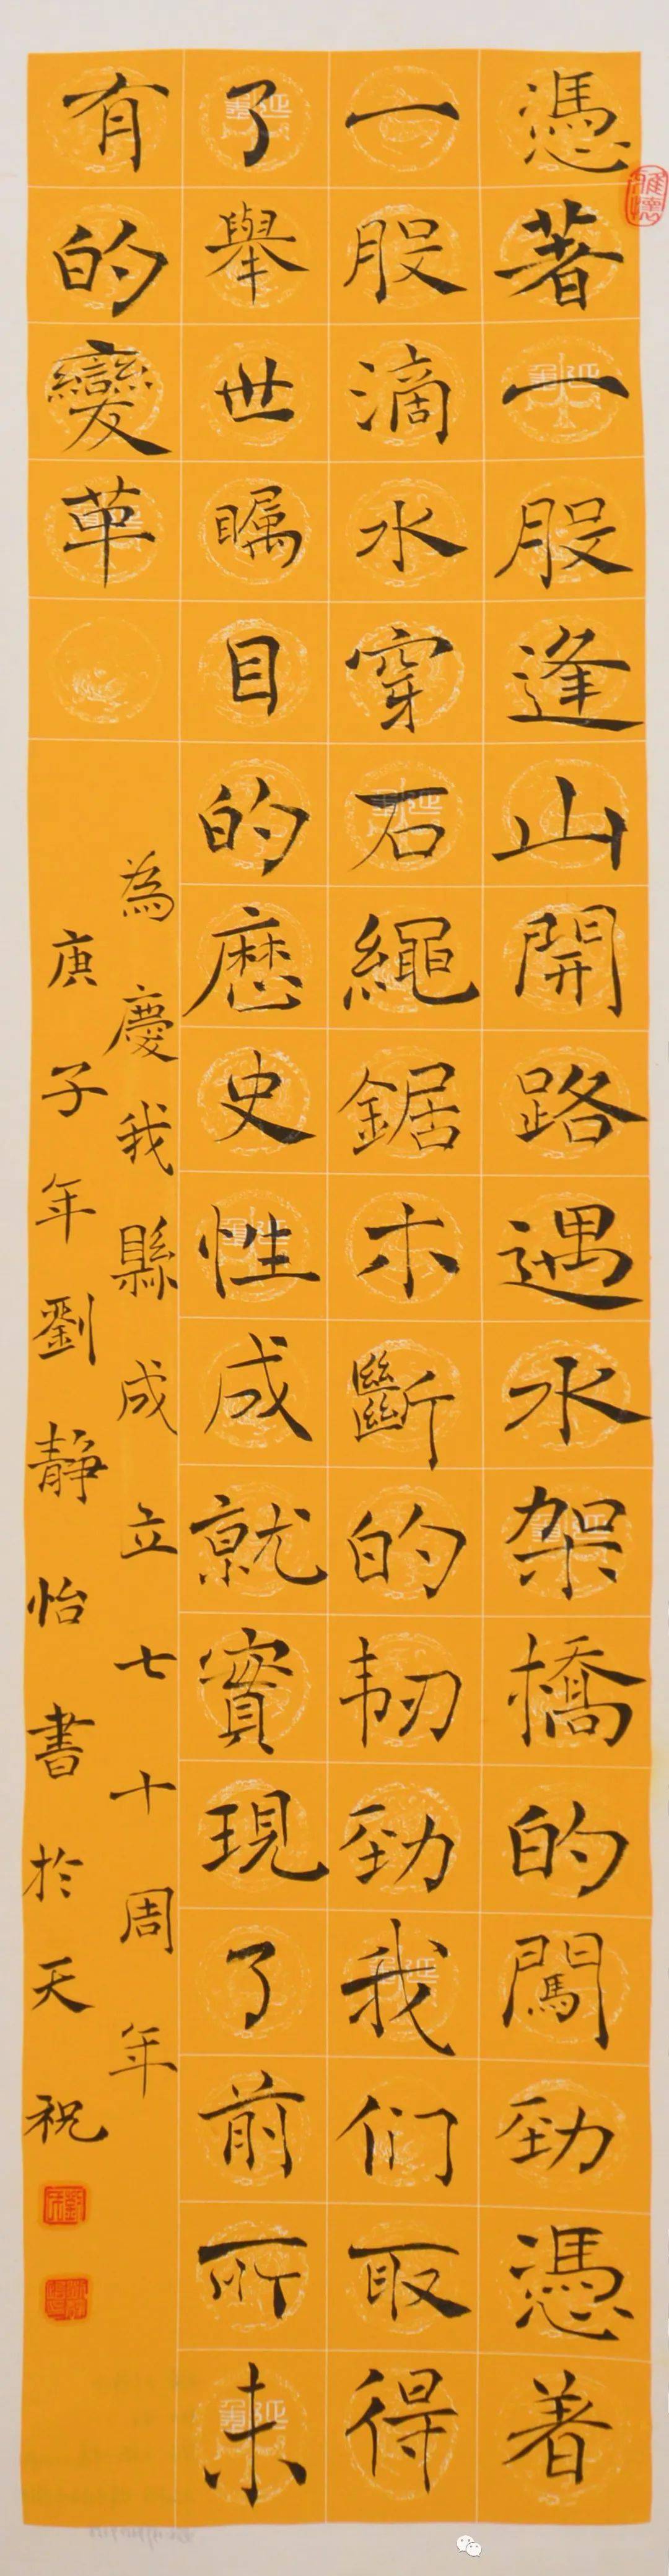 憑著一股逢山開路遇水架橋的闖勁憑着
一股滴水穿石繩鋸木斷的韧勁我们取得
了舉世瞩目的歷史性成就實現了前所未
有的變革
為慶我縣成立七十周年
庚子年劉靜怡書於天祝
雅懷